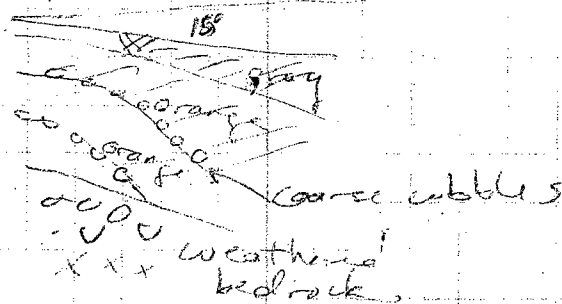 18°
gray
orange
orange
coarse cobbles
weathered
bedrock,